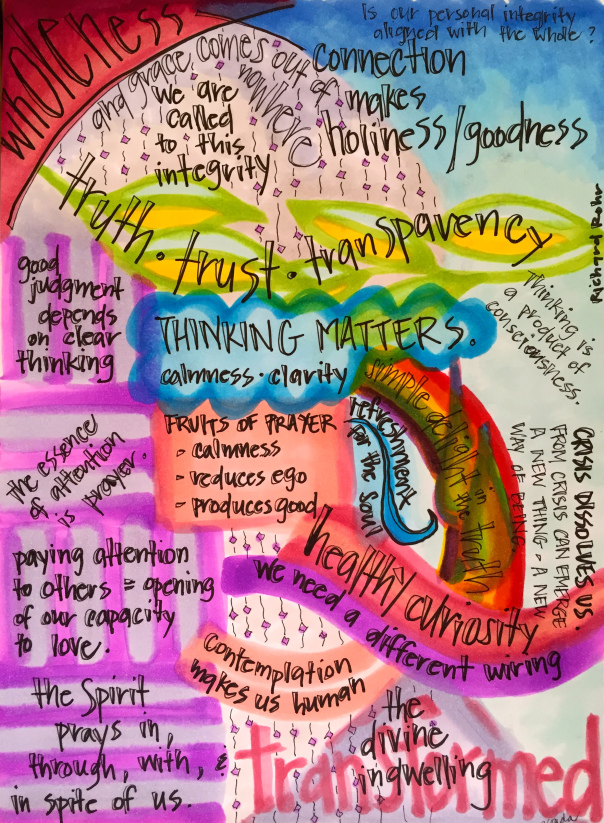 wholeness
and grace comes out of
nowhere
Is our personal integrity
aligned with the whole?
connection
makes
holiness/goodness
we are
called
to this
integrity
truth · trust · transparency
Richard Rohr
good
judgment
depends
on clear
thinking
THINKING MATTERS.
calmness · clarity
Thinking is
a product of
consciousness.
FRUITS OF PRAYER
- calmness
- reduces ego
- produces good
refreshment
for the soul
simple delight in
the truth
CRISIS DISSOLVES US.
FROM CRISIS CAN EMERGE
A NEW THING - A NEW
WAY OF BEING.
the essence
of attention
is prayer.
paying attention
to others = opening
of our capacity
to love.
healthy curiosity
we need a different wiring
contemplation
makes us human
the Spirit
prays in,
through, with, &
in spite of us.
the
divine
indwelling
transformed